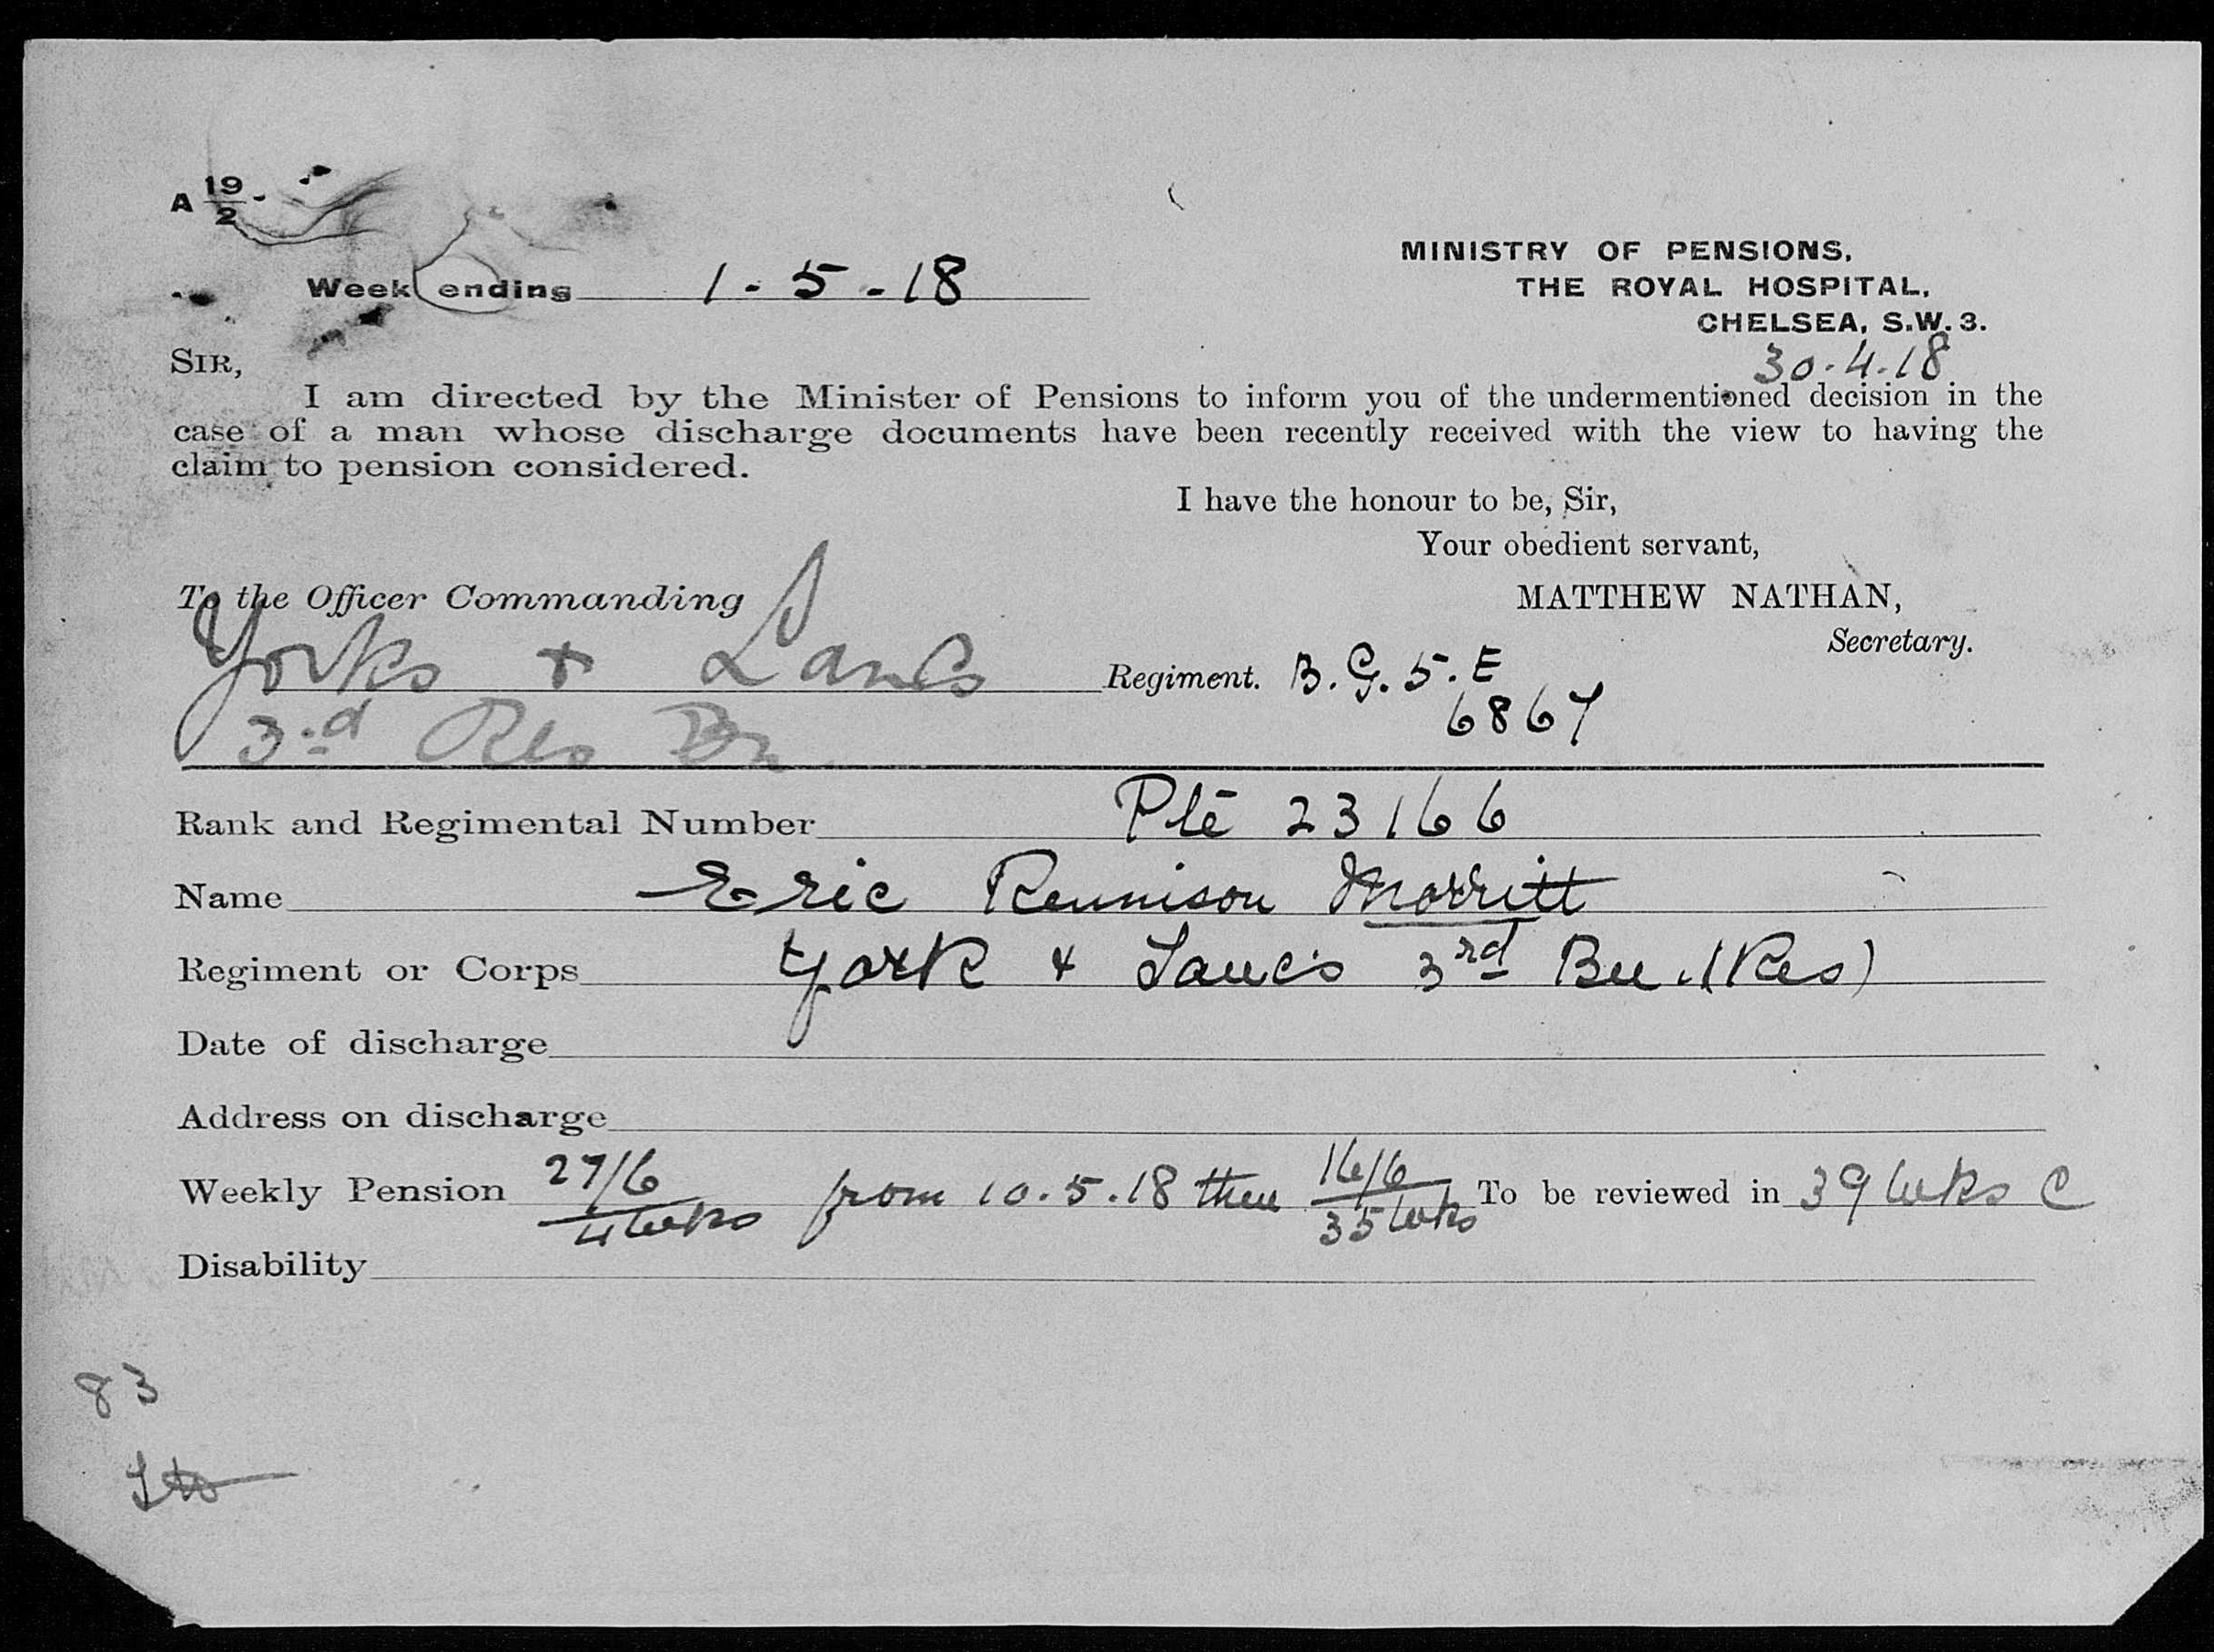 A 19/2.
Week ending 1-5-18
MINISTRY OF PENSIONS,
THE ROYAL HOSPITAL,
CHELSEA, S.W.3.
30.4.18
SIR,
I am directed by the Minister of Pensions to inform you of the undermentioned decision in the
case of a man whose discharge documents have been recently received with the view to having the
claim to pension considered.
I have the honour to be, Sir,
Your obedient servant,
To the Officer Commanding
MATTHEW NATHAN,
Secretary.
Yorks + Lancs Regiment. B.G.5.E
6867
3rd Res Bn
Rank and Regimental Number Pte 23166
Name Eric Rennison Morritt
Regiment or Corps York + Lancs 3rd Bn. (Res)
Date of discharge
Address on discharge
Weekly Pension 27/6 from 10.5.18 then 16/6 To be reviewed in 39 wks C
4 wks 35 wks
Disability
83